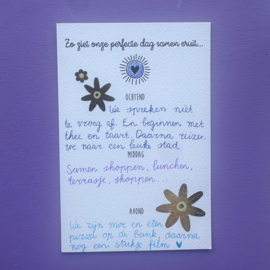 Zo ziet onze perfecte dag samen eruit...
OCHTEND
We spreken niet
te vroeg af. En beginnen met
thee en taart. Daarna reizen
we naar een leuke stad.
MIDDAG
Samen shoppen, lunchen,
terrasje, shoppen...
AVOND
We zijn moe en eten
pizza op de bank, daarna
nog een stukje film